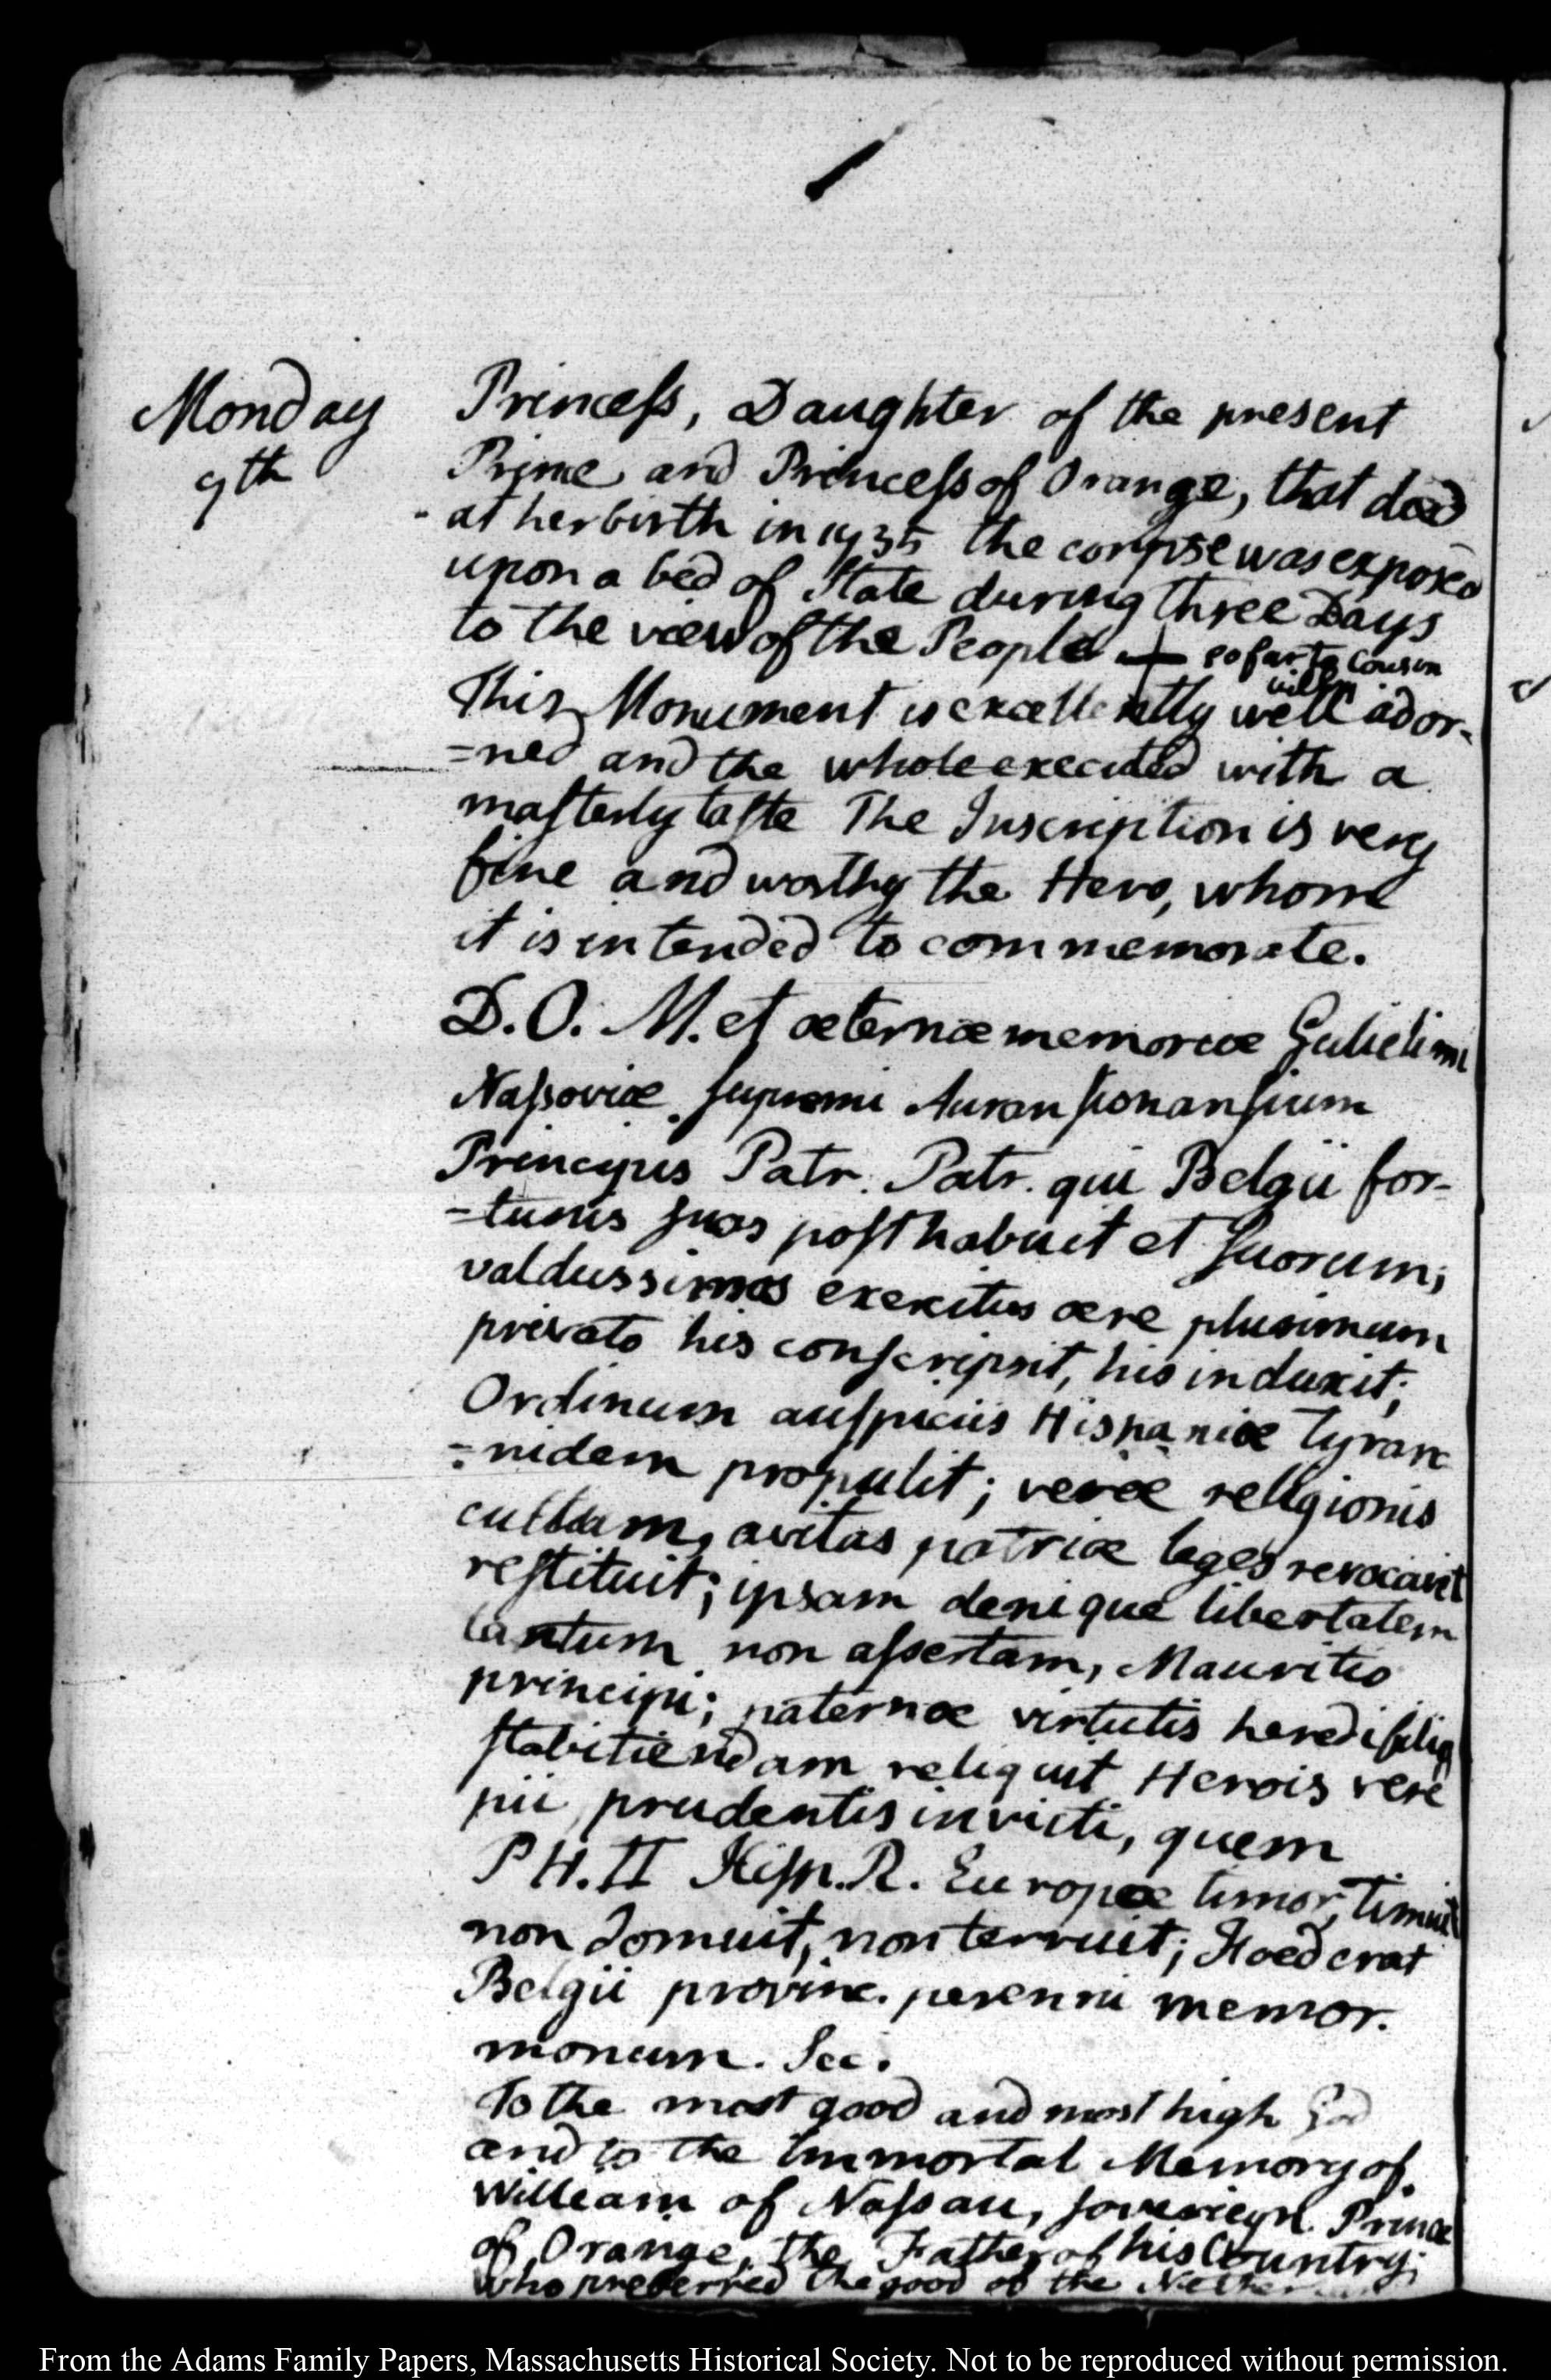 Monday
9th
Princess, Daughter of the present
Prince and Princess of Orange, that died
at her birth in 1735 the corpse was exposed
upon a bed of State during three Days
to the view of the People + so far to Cousin
Willm
This Monument is excellently well ador-
=ned and the whole executed with a
masterly taste The Inscription is very
fine and worthy the Hero, whom
it is intended to commemorate.
D. O. M. et æternæ memoriæ Gulielimi
Nassoviæ supremi Auransionansium
Principis Patr. Patr. qui Belgii for-
-tunis suas posthabuit et suorum;
valdissimos exercitus ære plurimum
privato his conscripsit, his induxit;
Ordinum auspiciis Hispaniæ tyran
=nidem propulit; veræ religionis
cultum, avitas patriæ leges revocavit
restituit; ipsam denique libertatem
tantum non assertam, Mauritio
principi; paternæ virtutis heredi filio
stabiliendam reliquit Herois vere
pii, prudentis invicti, quem
P H. II Hisp. R. Europæ timor, timuit
non domuit, non terruit; Foederat
Belgii provinc. perenni memor.
monum. Fec.
To the most good and most high God
and to the immortal Memory of
William of Nassau, sovereign Prince
of Orange, the Father of his Country;
who preferred the good of the
From the Adams Family Papers, Massachusetts Historical Society. Not to be reproduced without permission.